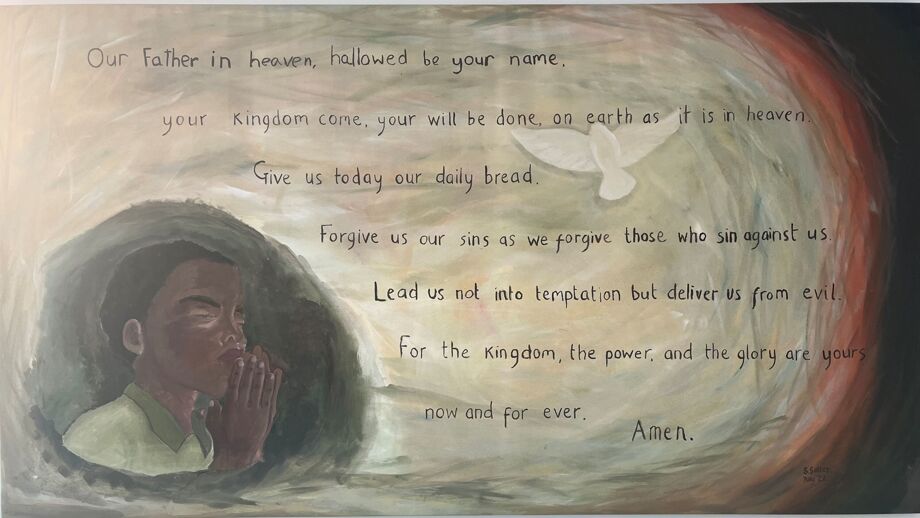 Our Father in heaven, hallowed be your name.
your Kingdom come, your will be done, on earth as it is in heaven.
Give us today our daily bread.
Forgive us our sins as we forgive those who sin against us.
Lead us not into temptation but deliver us from evil.
For the Kingdom, the power, and the glory are yours
now and for ever.
Amen.